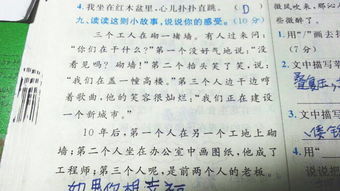 4.我坐在红木盆里,心儿扑扑直跳。 (D)
九、读读这则小故事,说说你的感受。(10分)
三个工人在砌一堵墙。有人过来问:
“你们在干什么?”第一个没好气地说:“没
看见吗?砌墙!”第二个抬头笑了笑,说:
“我们在盖一幢高楼。”第三个人边干边哼
着歌曲,他的笑容很灿烂:“我们正在建设
一个新城市。”
10年后,第一个人在另一个工地上砌
墙;第二个人坐在办公室中画图纸,他成了
工程师;第三个人呢,是前两个人的老板。
如果你想幸福
微风吹来,那
些微醉了。
1.用“/”画去
(7分)
2.文中描写
3.文中描
4.用“
说说把